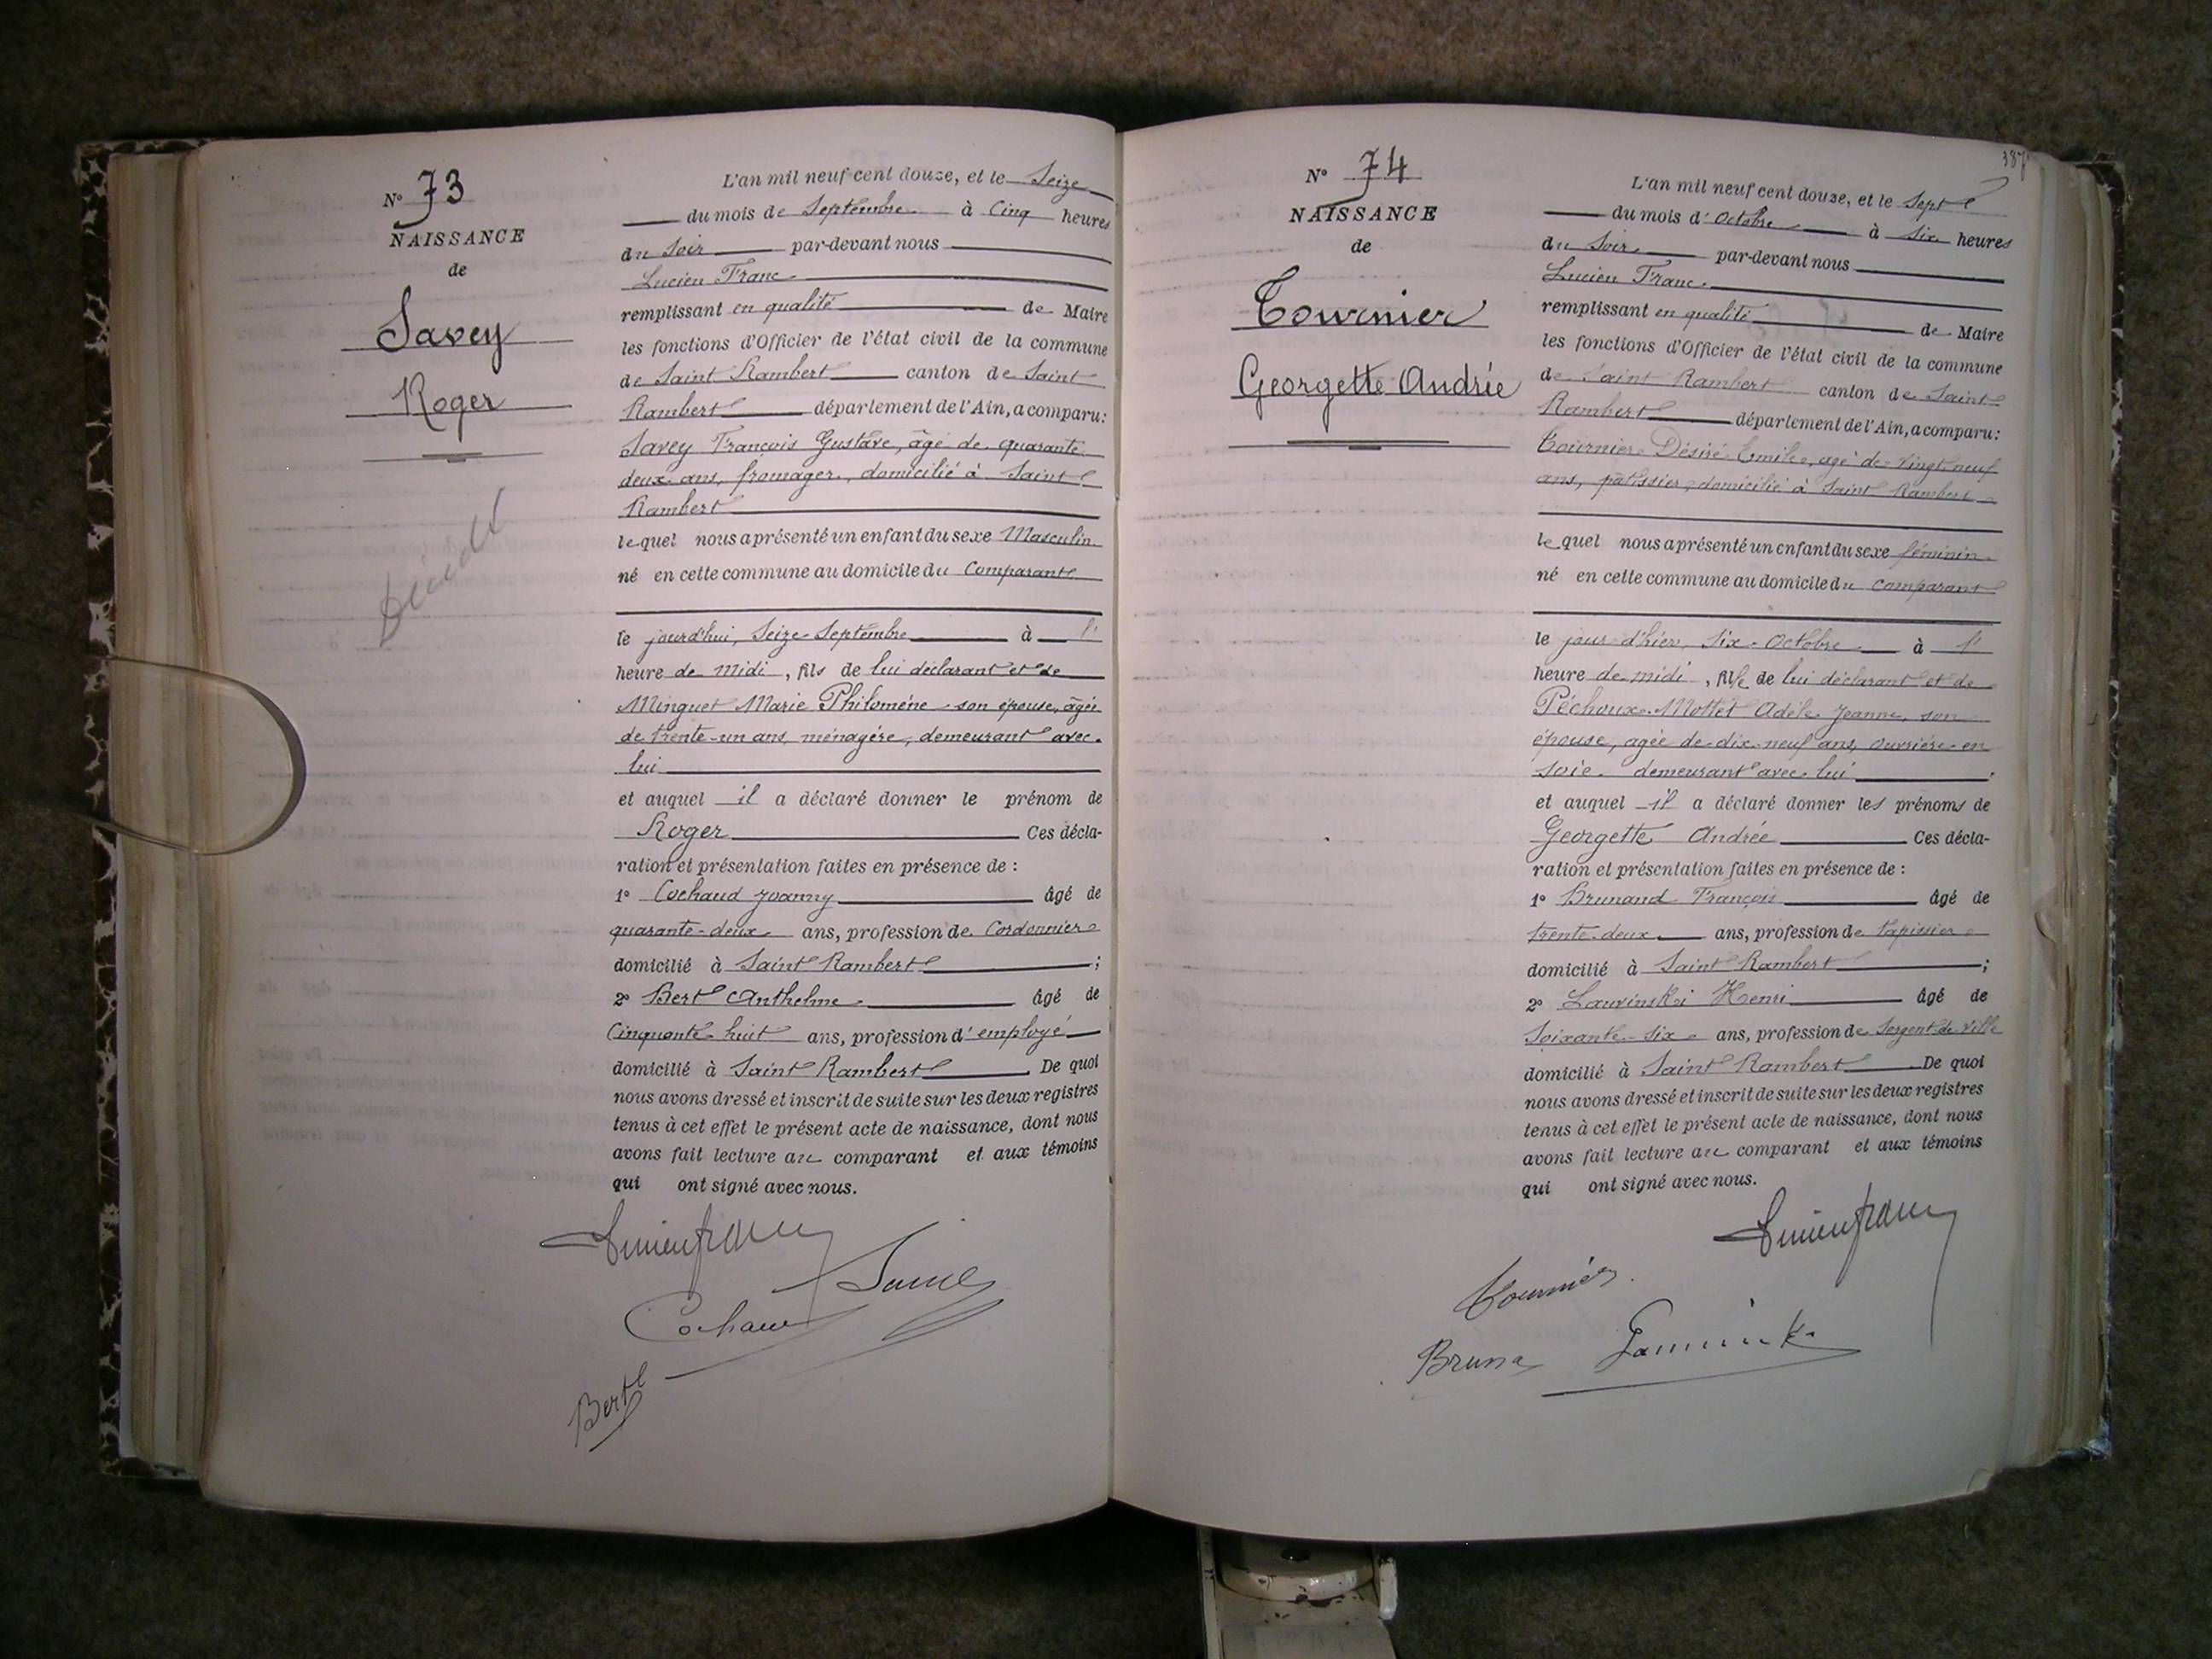 N° 73
NAISSANCE
de
Savey
Roger
Décédé
L'an mil neuf cent douze, et le Seize
du mois de Septembre à Cinq heures
du Soir par-devant nous
Lucien Franc
remplissant en qualité de Maire
les fonctions d'Officier de l'état civil de la commune
de Saint Rambert canton de Saint
Rambert département de l'Ain, a comparu:
Savey François Gustave, âgé de quarante
deux ans, fromager, domicilié à Saint
Rambert
lequel nous a présenté un enfant du sexe Masculin
né en cette commune au domicile du Comparant
le jourd'hui, Seize Septembre à l'
heure de midi, fils de lui déclarant et de
Minguet Marie Philomène son épouse, âgée
de trente-un ans, ménagère, demeurant avec
lui
et auquel il a déclaré donner le prénom de
Roger Ces décla-
ration et présentation faites en présence de :
1° Cochaud Joanny âgé de
quarante-deux ans, profession de Cordonnier
domicilié à Saint Rambert ;
2° Bert Anthelme âgé de
Cinquante-huit ans, profession d'employé
domicilié à Saint Rambert De quoi
nous avons dressé et inscrit de suite sur les deux registres
tenus à cet effet le présent acte de naissance, dont nous
avons fait lecture au comparant et aux témoins
qui ont signé avec nous.
Lucien Franc
Bert
187
N° 74
NAISSANCE
de
Tournier
Georgette Andrée
L'an mil neuf cent douze, et le Sept
du mois d'Octobre à Six heures
du Soir par-devant nous
Lucien Franc
remplissant en qualité de Maire
les fonctions d'Officier de l'état civil de la commune
de Saint Rambert canton de Saint
Rambert département de l'Ain, a comparu:
Tournier Désiré Emile, agé de vingt neuf
ans, pâtissier, domicilié à Saint Rambert
lequel nous a présenté un enfant du sexe féminin
né en cette commune au domicile du comparant
le jour d'hier, Six Octobre à l'
heure de midi, fille de lui déclarant et de
Péchoux-Mottet Adèle Jeanne, son
épouse, agée de dix-neuf ans, ouvrière en
soie demeurant avec lui
et auquel il a déclaré donner les prénoms de
Georgette Andrée Ces décla-
ration et présentation faites en présence de :
1° Brunand François âgé de
trente-deux ans, profession de tapissier
domicilié à Saint Rambert ;
2° Lauvinski Henri âgé de
Soixante-Six ans, profession de Sergent de Ville
domicilié à Saint Rambert De quoi
nous avons dressé et inscrit de suite sur les deux registres
tenus à cet effet le présent acte de naissance, dont nous
avons fait lecture au comparant et aux témoins
qui ont signé avec nous.
Lucien Franc
Tournier